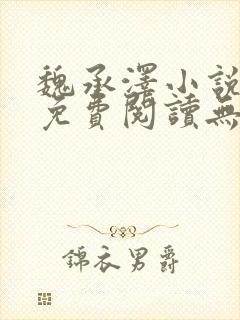 魏承澤小說
免費閱讀無
錦衣男爵